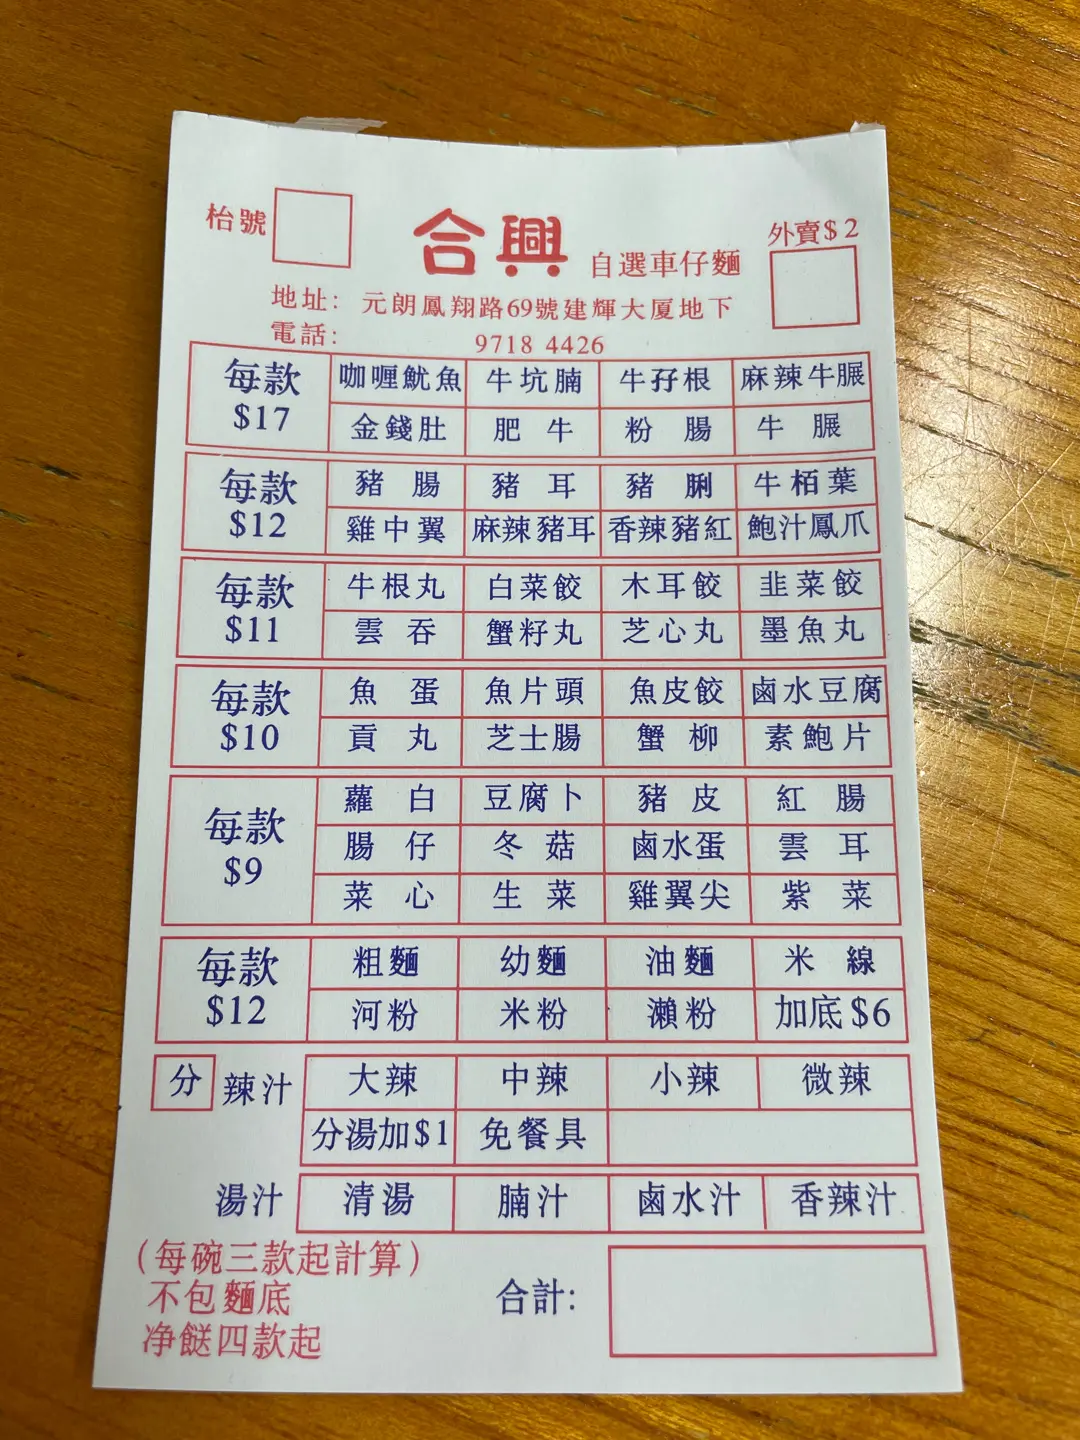 枱號
合興 自選車仔麵
外賣$2
地址：元朗鳳翔路69號建輝大厦地下
電話：9718 4426
每款 $17
咖喱魷魚 牛坑腩 牛孖根 麻辣牛𦟌
金錢肚 肥牛 粉腸 牛𦟌
每款 $12
豬腸 豬耳 豬脷 牛栢葉
雞中翼 麻辣豬耳 香辣豬紅 鮑汁鳳爪
每款 $11
牛根丸 白菜餃 木耳餃 韭菜餃
雲吞 蟹籽丸 芝心丸 墨魚丸
每款 $10
魚蛋 魚片頭 魚皮餃 鹵水豆腐
貢丸 芝士腸 蟹柳 素鮑片
每款 $9
蘿白 豆腐卜 豬皮 紅腸
腸仔 冬菇 鹵水蛋 雲耳
菜心 生菜 雞翼尖 紫菜
每款 $12
粗麵 幼麵 油麵 米線
河粉 米粉 瀨粉 加底$6
分 辣汁 大辣 中辣 小辣 微辣
分湯加$1 免餐具
湯汁 清湯 腩汁 鹵水汁 香辣汁
（每碗三款起計算）
不包麵底
净餸四款起
合計：